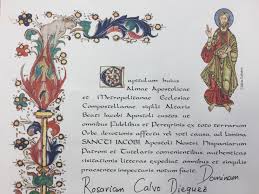 Capitulum huius
Almae Apostolicae
et Metropolitanae Ecclesiae
Compostellanae sigilli Altaris
Beati Jacobi Apostoli custos ut
omnibus Fidelibus et Peregrinis ex toto terrarum
Orbe, devotionis affectu vel voti causa, ad limina
SANCTI IACOBI Apostoli Nostri Hispaniarum
Patroni et Tutelaris convenientibus, authenticas
visitationis litteras expediat, omnibus et singulis
praesentes inspecturis notum facit: Dominam
Rosariam Calvo Dieguez